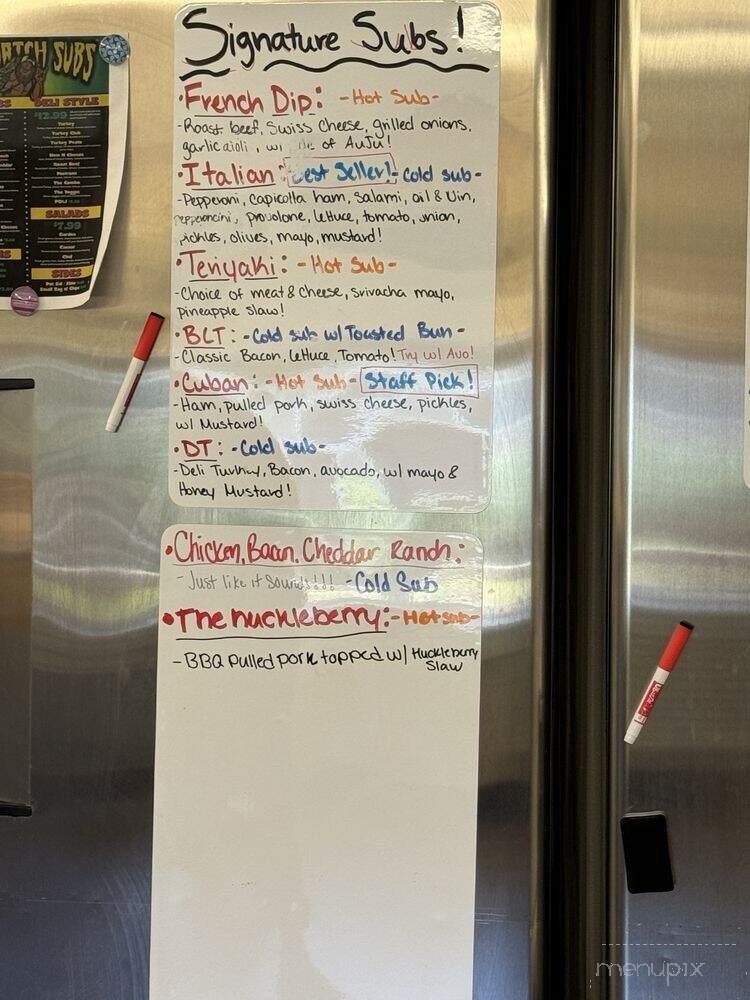 Signature Subs!
•French Dip: -Hot Sub-
-Roast beef, Swiss Cheese, grilled onions,
garlic aioli, w/ of AuJu!
•Italian: Best Seller!-cold sub-
-Pepperoni, capicolla ham, Salami, oil & Vin,
Pepperoncini, provolone, lettuce, tomato, onion,
pickles, olives, mayo, mustard!
•Teriyaki: -Hot Sub-
-Choice of meat & cheese, srivacha mayo,
pineapple slaw!
•BLT: -Cold sub w/ Toasted Bun-
-Classic Bacon, Lettuce, Tomato! Try w/ Avo!
•Cuban: -Hot Sub- Staff Pick!
-Ham, pulled pork, swiss cheese, pickles,
w/ Mustard!
•DT: -Cold sub-
-Deli Turkey, Bacon, avocado, w/ mayo &
Honey Mustard!
•Chicken, Bacon, Cheddar Ranch:
-Just like it Sounds!!! -Cold Sub
•The huckleberry:-Hot sub-
-BBQ Pulled pork topped w/ Huckleberry
Slaw
SUBS
DELI STYLE
$12.99
Turkey
Turkey Club
Turkey Pesto
Ham & Cheese
Roast Beef
Pastrami
The Combo
The Veggie
SALADS
$7.99
Garden
Caesar
Chef
SIDES
menupix